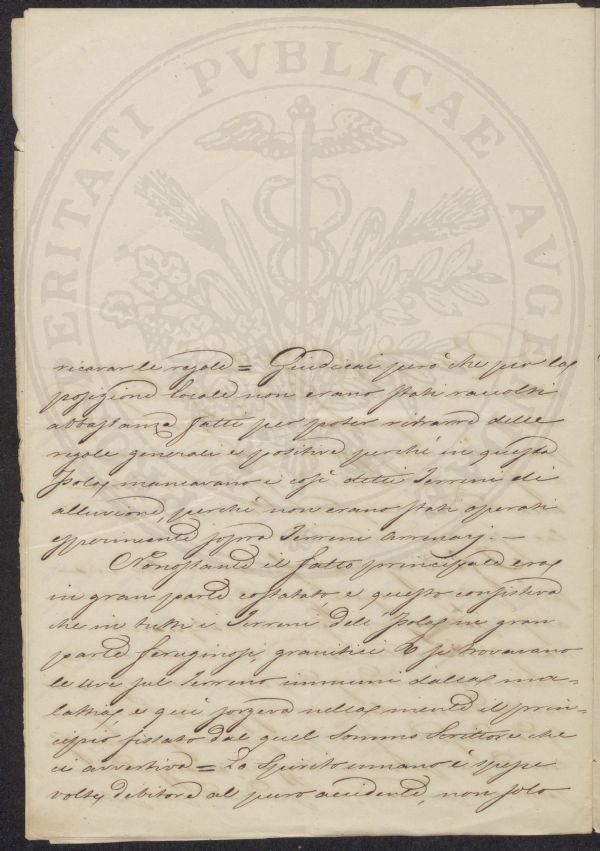 PROSPERITATI PVBLICAE AVGENDAE
ricavar le regole = Giudicai però che per la
posizione locale non erano stati raccolti
abbastanza fatti per poter ritrarre delle
regole generali e positive perchè in questa
Isola mancavano i così detti Terreni di
alluvione, perchè non erano stati operati
esperimenti sopra Terreni Arrenarj. —
Nonostante il fatto principale era
in gran parte costatato, e questo consisteva
che in tutti i Terreni dell' Isola in gran
parte feruginosi, granitici & si trovavano
le uve sul Terreno immuni dalla ma=
lattia, e quì sorgeva nella mente il prin=
cipio fissato dal quel Sommo Scrittore che
ci avvertiva = Lo Spirito umano è spesse
volte debitore al puro accidente, non solo